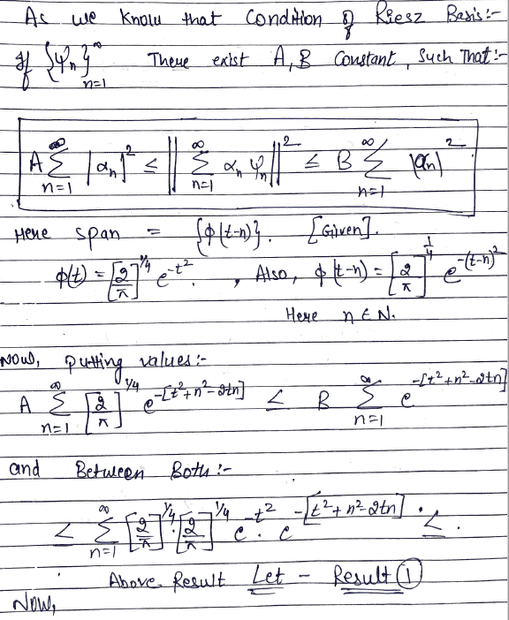 As we know that Condition of Riesz Basis:-
If {ψn}∞n=1 There exist A,B Constant, Such That:-
A ∞Σn=1 |αn|² ≤ || ∞Σn=1 αn ψn ||² ≤ B ∞Σn=1 |αn|²
Here span = {ϕ(t-n)}. [Given].
ϕ(t) = [2/π]^1/4 e^-t². , Also, ϕ(t-n) = [2/π]^1/4 e^-(t-n)²
Here n ∈ N.
Now, putting values:-
A ∞Σn=1 [2/π]^1/4 e^-[t²+n²-2tn] ≤ B ∞Σn=1 e^-[t²+n²-2tn]
and Between Both:-
≤ ∞Σn=1 [2/π]^1/4 · [2/π]^1/4 e^-t² · e^-[t²+n²-2tn] · ≤ .
Above Result Let - Result ①
Now,